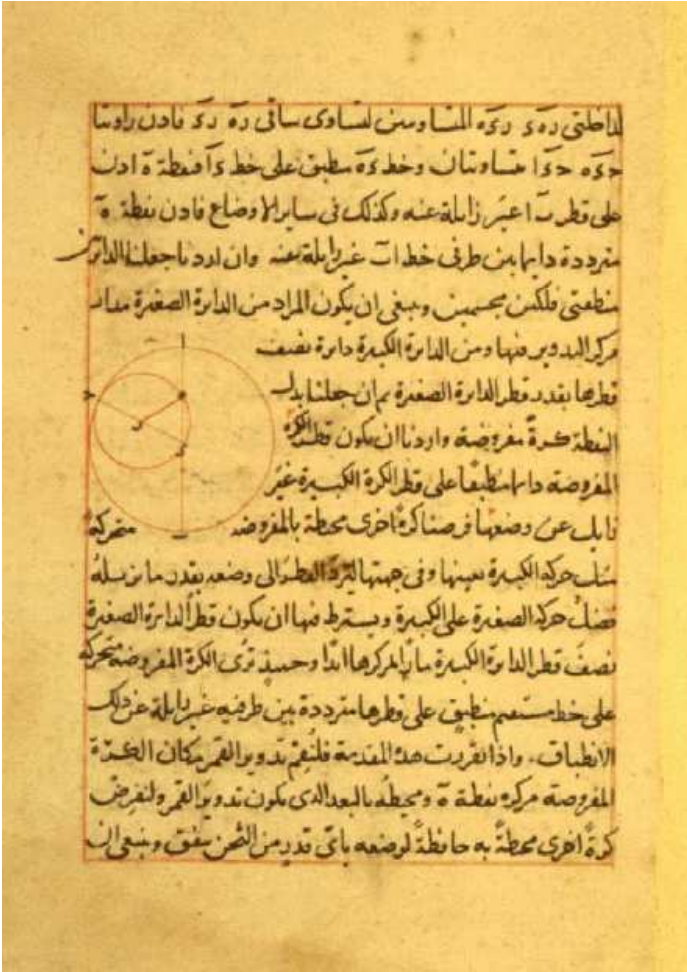 لداخلتى رهء رءه المتساوىتىن لتساوى ساقى ره رء فاذن زاوىتا
حءه حءا متساوىتان وخط ءه ىنطبق على خط ءا فنقطة ه اذن
على قطر ىا غىر زاىلة عنه وكذلك فى ساىر الاوضاع فاذن نقطة ه
مترددة داىما بىن طرفى خط اب غىر زاىلة عنه وان اردنا جعلنا الداىرتىن
منطقتى فلكىن مجسمىن وىنبغى ان ىكون المراد من الداىرة الصغىرة مدار
مركز التدوىر فىها ومن الداىرة الكبىرة داىرة نصف
قطرها بقدر قطر الداىرة الصغىرة ثم ان جعلنا بدل
النقطة كرةً مفروضة واردنا ان ىكون قطر الكرة
المفروضة داىما منطبقًا على قطر الكرة الكبىرة غىر
زاىل عن وضعها فرضنا كرةً اخرى محىطة بالمفروضه متحركة
مثل حركة الكبىرة بعىنها وفى جهتها لىردّ القطر الى وضعه بقدر ما ىزىله
فضلُ حركة الصغىرة على الكبىرة وىشترط فىها ان ىكون قطر الداىرة الصغىرة
نصفَ قطر الداىرة الكبىرة مارًّا بمركزها ابدًا وحىنىذٍ تُرى الكرة المفروضة متحركة
على خط مستقىم منطبقٍ على قطرها مترددة بىن طرفىه غىر زاىلة عن ذلك
الانطباق. واذا تقررت هذه المقدمة فلنُقِمْ تدوىر القمر مكان الكرة
المفروضة مركزه نقطة ه ومحىطه بالبعد الذى ىكون تدوىر القمر ولنفرض
كرةً اخرى محىطةً به حافظةً لوضعه باىّ قدرٍ من الثخن ىتفق وىنبغى ان
ا
ح
ه
ر
ء
ب